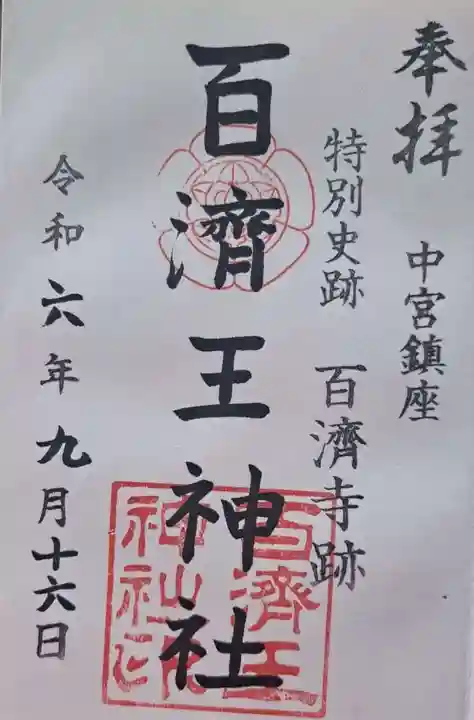 奉拝
中宮鎮座
特別史跡 百濟寺跡
百濟王神社
百濟王
神社印
令和六年九月十六日